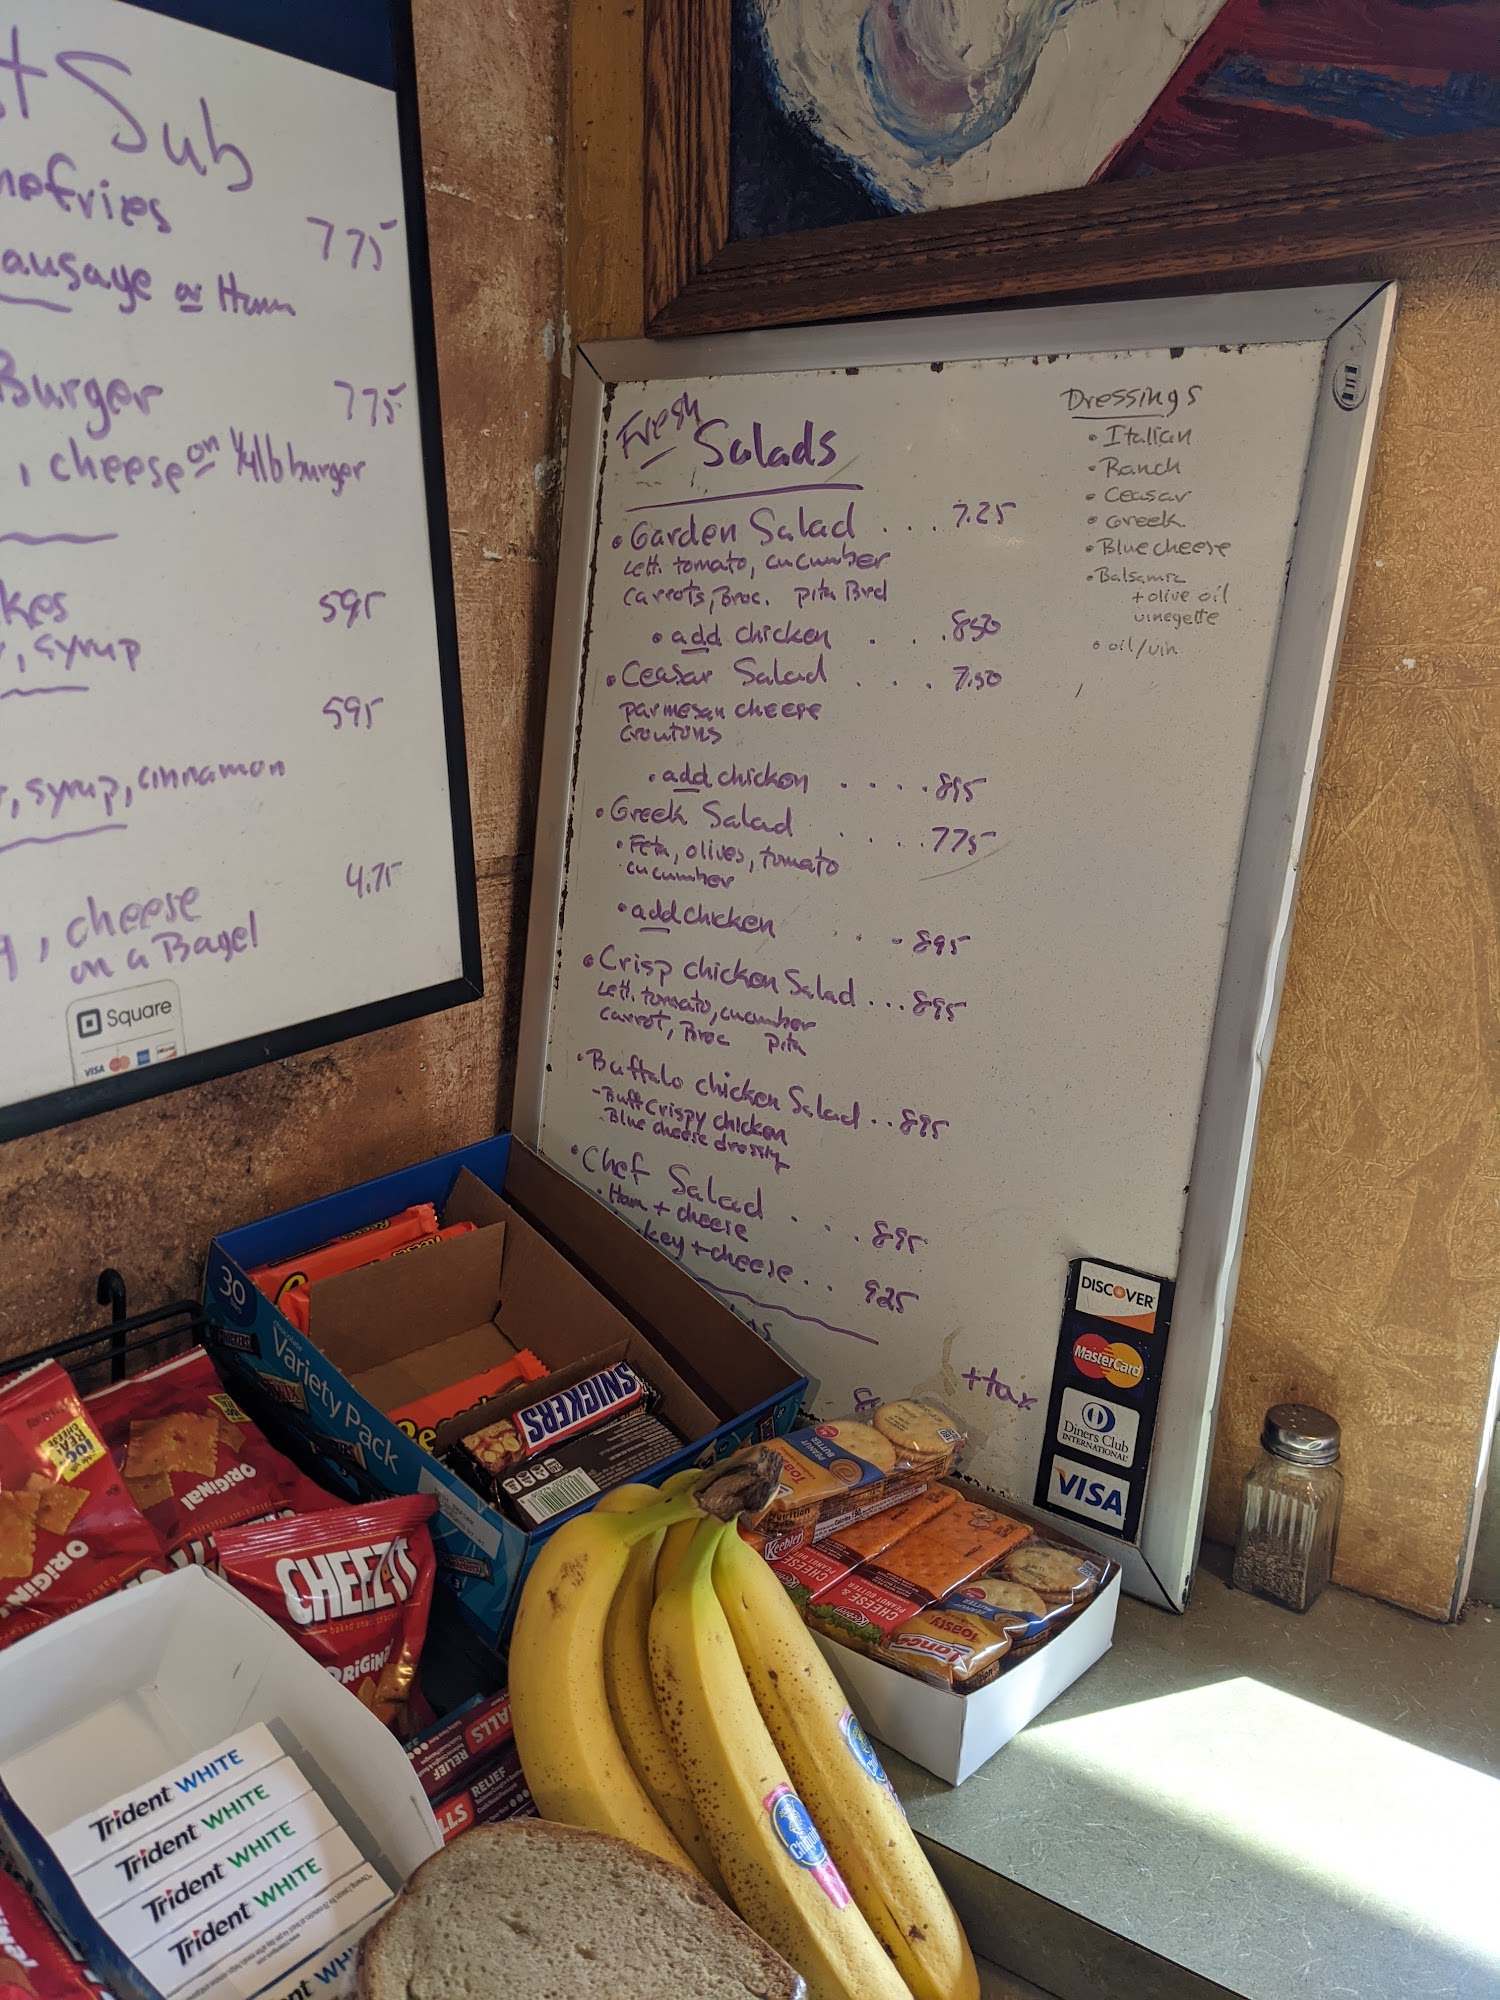 Sub
775
sausage or Ham
Burger 775
, cheese on 1/4lb burger
595
, syrup
595
, syrup, cinnamon
4.75
, cheese
on a Bagel
Square
VISA
Fresh
Salads
• Garden Salad . . . 7.25
Lett. tomato, cucumber
carrots, Broc. pita Brd
• add chicken . . . 850
• Ceasar Salad . . . 7.50
parmesan cheese
croutons
• add chicken . . . . . 895
• Greek Salad . . . . 775
• Feta, olives, tomato
cucumber
• add chicken . . - 895
• Crisp chicken Salad ... 895
Lett. tomato, cucumber
carrot, Broc pita
• Buffalo chicken Salad .. 895
- Buff Crispy chicken
- Blue cheese dressing
• Chef Salad . . . 895
• Ham + cheese
key + cheese . . 925
+ tax
Dressings
• Italian
• Ranch
• Ceasar
• Greek
• Blue cheese
• Balsamic
+ olive oil
vinegette
• oil/vin
DISCOVER
MasterCard
Diners Club
INTERNATIONAL
VISA
30
Variety Pack
SNICKERS
100%
REAL
CHEESE
ORIGINAL
ORIGINAL
CHEEZ-IT
baked snack crackers
ORIGINAL
PEANUT
BUTTER
Toasty
Keebler
CHEESE &
PEANUT BUTTER
Keebler
CHEESE &
PEANUT BUTTER
Lance
Toasty
PEANUT
RELIEF
RELIEF
Trident WHITE
Trident WHITE
Trident WHITE
Trident WHITE
Chiquita